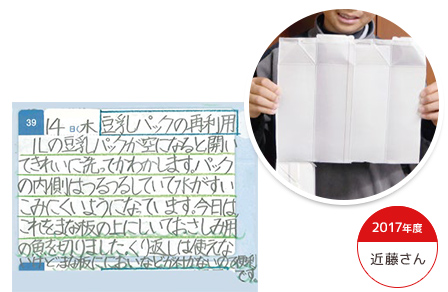 39
14日(木)豆乳パックの再利用
1Lの豆乳パックが空になると開い
てきれいに洗ってかわかします。パック
の内側はつるつるしていて水がすい
こみにくいようになっています。今日は
これをまな板の上にしいておさしみ用
の魚を切りました。くり返しは使えな
いけどまな板ににおいなどが付かないので便利
です。
2017年度
近藤さん